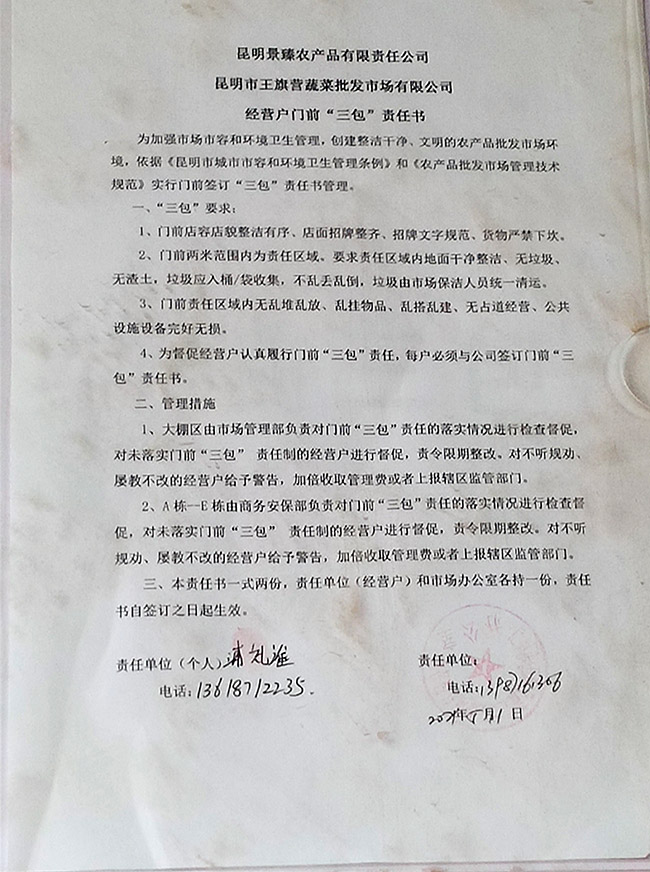 昆明景臻农产品有限责任公司
昆明市王旗营蔬菜批发市场有限公司
经营户门前“三包”责任书
为加强市场市容和环境卫生管理，创建整洁干净、文明的农产品批发市场环
境，依据《昆明市城市市容和环境卫生管理条例》和《农产品批发市场管理技术
规范》实行门前签订“三包”责任书管理。
一、“三包”要求：
1、门前店容店貌整洁有序、店面招牌整齐、招牌文字规范、货物严禁下坎。
2、门前两米范围内为责任区域。要求责任区域内地面干净整洁、无垃圾、
无渣土，垃圾应入桶/袋收集，不乱丢乱倒，垃圾由市场保洁人员统一清运。
3、门前责任区域内无乱堆乱放、乱挂物品、乱搭乱建、无占道经营、公共
设施设备完好无损。
4、为督促经营户认真履行门前“三包”责任，每户必须与公司签订门前“三
包”责任书。
二、管理措施
1、大棚区由市场管理部负责对门前“三包”责任的落实情况进行检查督促，
对未落实门前“三包” 责任制的经营户进行督促，责令限期整改。对不听规劝、
屡教不改的经营户给予警告，加倍收取管理费或者上报辖区监管部门。
2、A 栋--E 栋由商务安保部负责对门前“三包”责任的落实情况进行检查督
促，对未落实门前“三包” 责任制的经营户进行督促，责令限期整改。对不听
规劝、屡教不改的经营户给予警告，加倍收取管理费或者上报辖区监管部门。
三、本责任书一式两份，责任单位（经营户）和市场办公室各持一份，责任
书自签订之日起生效。
责任单位（个人） 责任单位：
电话：13618712235. 电话：
年 月1日